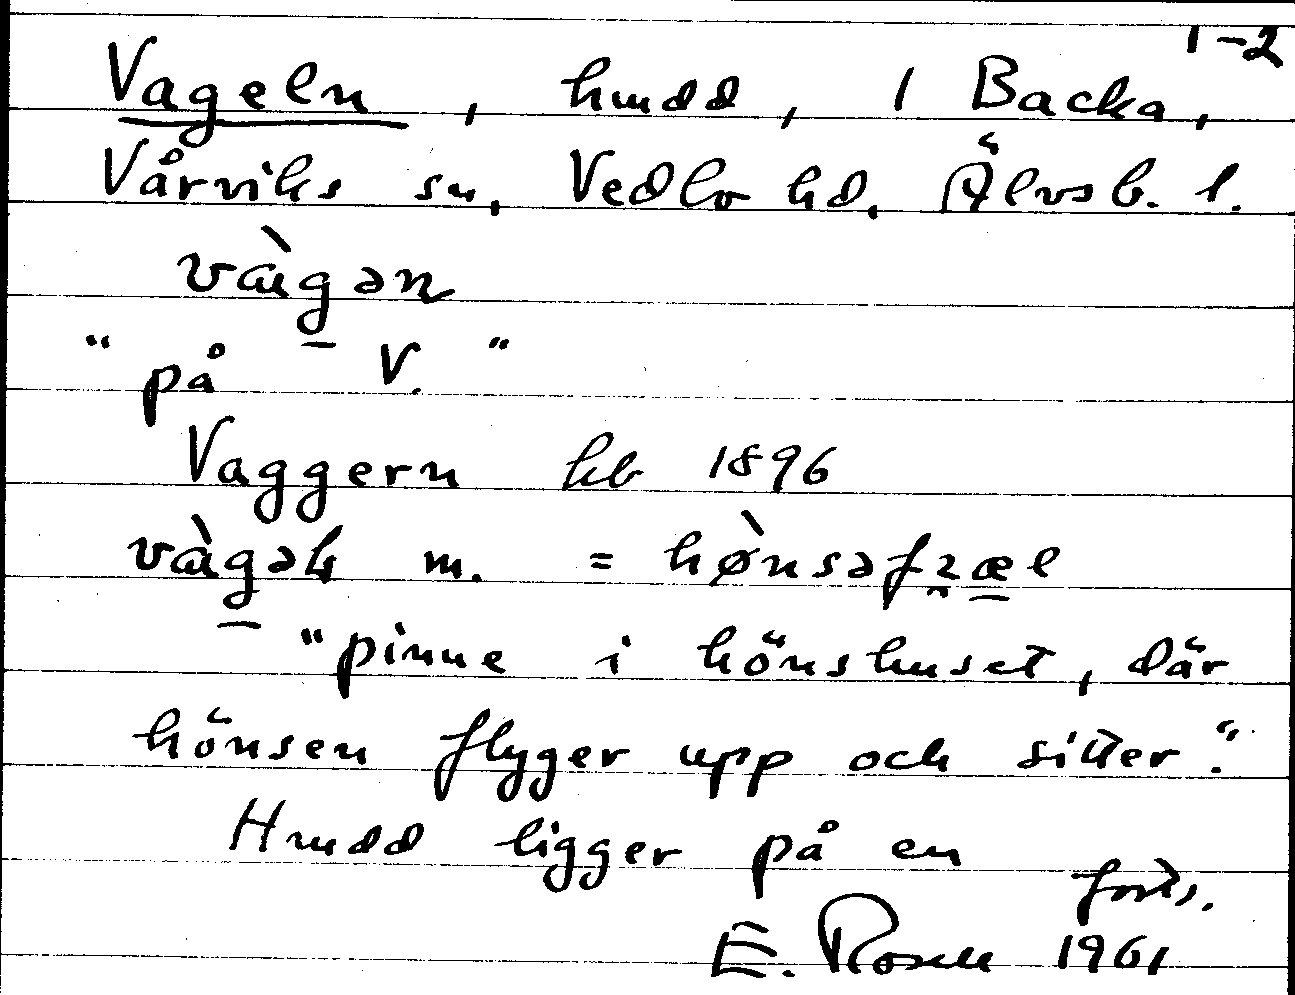 1-2
Vageln, hmdd, 1 Backa,
Vårviks sn, Vedbo hd, Älvsb. l.
vàgən
"på V."
Vaggern kb 1896
m. =
"pinne i hönshuset, där
hönsen flyger upp och sitter".
Hmdd ligger på en
forts.
E. Rosell 1961